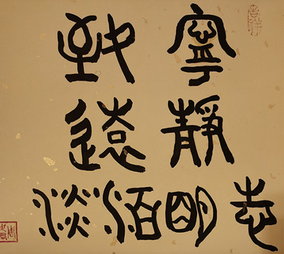 寧靜
致遠
淡泊明志